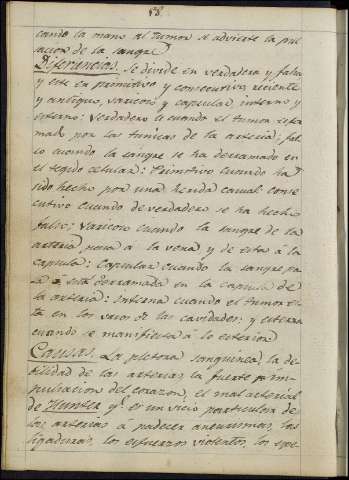 58.
cando la mano al tumor se advierte la pul
sacion de la sangre
Diferencias. Se divide en verdadera y falsa
y esta en primitivo y consecutivo, reciente
y antiguo, varicoso y capsular, interno y
esterno: Verdadero es cuando el tumor es for
mado por las tunicas de la arteria: fal
so cuando la sangre se ha derramado en
el tegido celular: Primitivo cuando ha
sido hecho por una herida casual conse
cutivo cuando de verdadero se ha hecho
falso; Varicoso cuando la sangre de la
arteria pasa á la vena y de esta á la
capsula: Capsular cuando la sangre pa
sa ó está derramada en la capsula de
la arteria: Interna cuando el tumor es
tá en los vasos de las cavidades: y esterna
cuando se manifiesta á lo esterior
Causas. La pletora sanguinea, la de
bilidad de las arterias, la fuerte é im
pulsacion del corazon, el mal arterial
de Hunter q.e es un vicio particular de
las arterias á padecer aneurismas, las
ligaduras, los esfuerzos violentos, los epe-